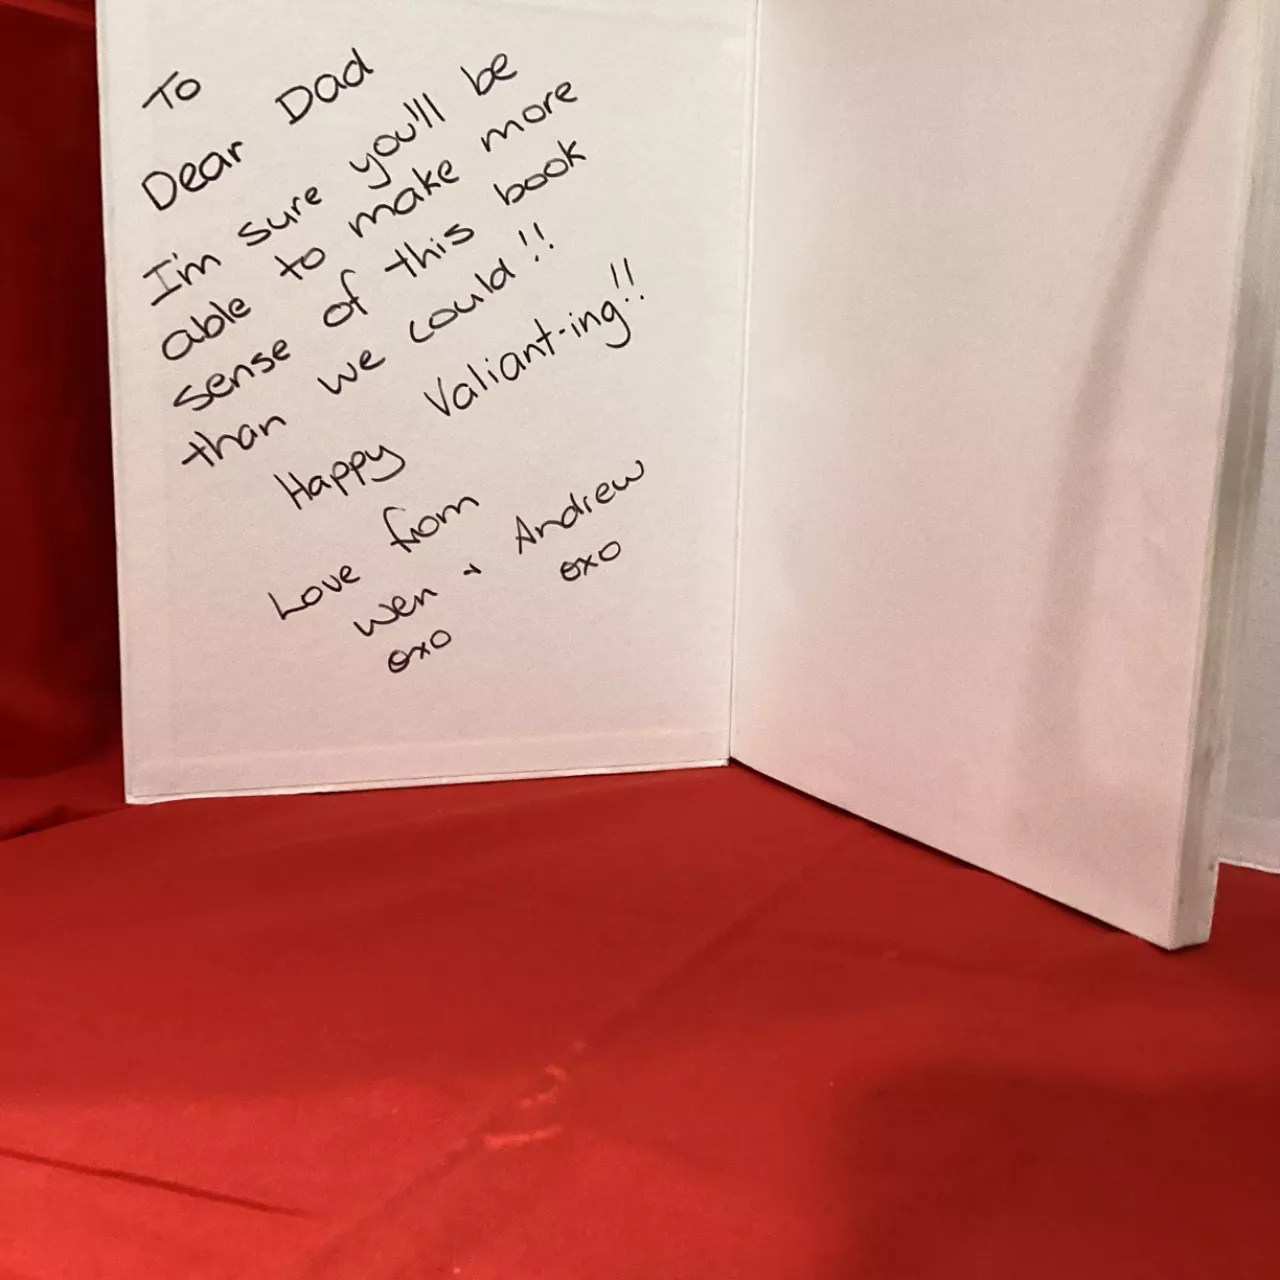 To
Dear Dad
I'm sure you'll be
able to make more
sense of this book
than we could!!
Happy Valiant-ing!!
Love from
Wen + Andrew
oxo oxo